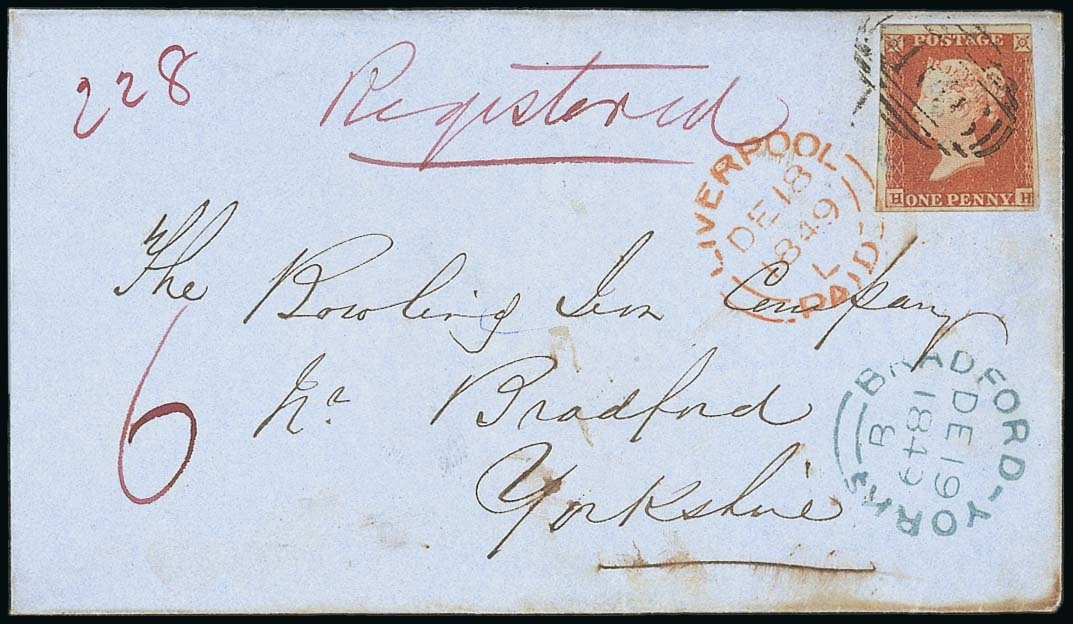 228 Registered
POSTAGE
H ONE PENNY H
LIVERPOOL
DE 18
1849
L
PAID
The Bowling Iron Company
Nr Bradford
Yorkshire
6
BRADFORD-YORKS
DE 19
1849
8